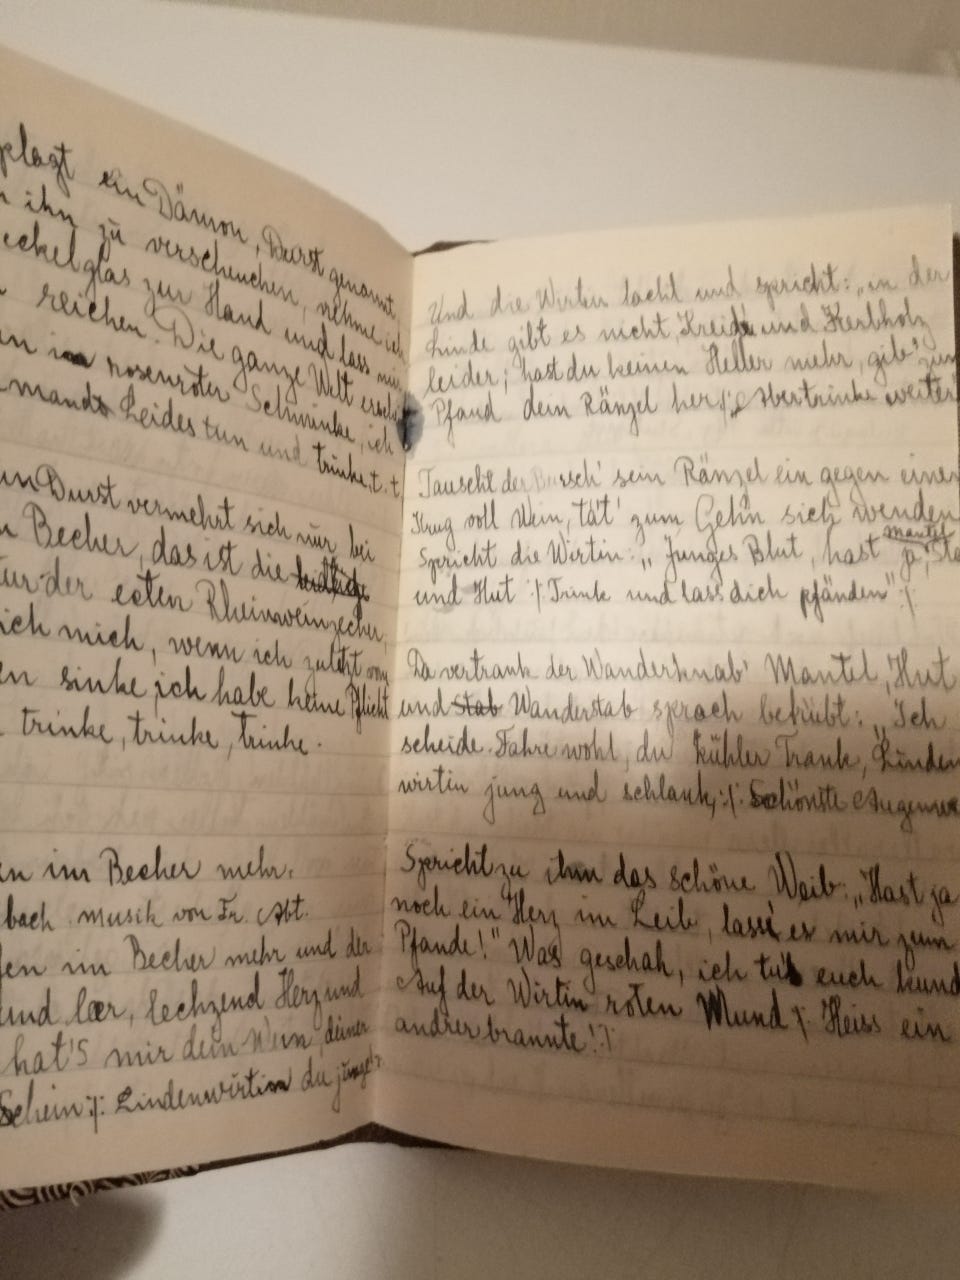 plagt ein Dämon, Durst genannt
ihn zu verscheuchen, nehme ich
eckelglas zur Hand und lass mir
reichen. Die ganze Welt
in rosenroter Schminke, ich
mands Leides tun und trinke t. t.
Durst vermehrt sich nur bei
Becher, das ist die
tur der ecten Rheinweinzecher,
ich mich, wenn ich zuletzt vom
en sinke, ich habe keine Pflicht
trinke, trinke, trinke.
en im Becher mehr.
bach. Musik von Fr. Abt.
fen im Becher mehr und der
und leer, lechzend Herz und
hat's mir dein Wein, deiner
Schein :/: Lindenwirtin du junge :/:
Und die Wirtin lacht und spricht: „in der
Linde gibt es nicht, Kreide und Kerbholz
leider, hast du keinen Heller mehr, gib' zum
Pfand dein Ränzel her, :/: Aber trinke weiter
Tauscht der Bursch' sein Ränzel ein gegen einen
Krug voll Wein, tät' zum Gehn sich wenden
Spricht die Wirtin: „Junges Blut, hast ja, Mantel Sta
und Hut :/: Trink und lass dich pfänden" :/:
Da vertrank der Wanderknab' Mantel, Hut
und Stab Wanderstab sprach betrübt: „Ich
scheide. Fahre wohl, du kühler Trank, Linden
wirtin jung und schlank, :/: Schönste Augenwe
Spricht zu ihm das schöne Weib: „Hast ja
noch ein Herz im Leib, lass' es mir zum
Pfande!" Was geschah, ich tu's euch kund
Auf der Wirtin roten Mund :/: Heiss ein
andrer brannte! :/: